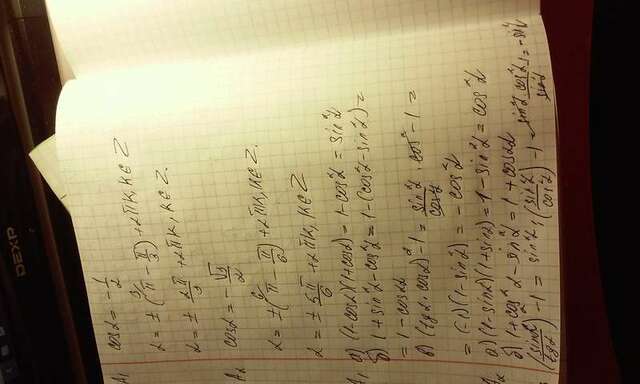 DEXP
A₁ cosα = -1/2
α = ±(π - π/3) + 2πk, k∈Z
α = ± 2π/3 + 2πk, k∈Z.
A₂ cosα = -√3/2
α = ±(π - π/6) + 2πk, k∈Z.
α = ± 5π/6 + 2πk, k∈Z
а) (1-cosα)(1+cosα) = 1-cos²α = sin²α
б) 1+sin²α-cos²α = 1-(cos²α-sin²α) =
= 1-cos2α
в) (tgα·cosα)²-1 = sin²α/cos²α · cos²-1 =
= (-1)(1-sin²α) = -cos²α
а) (1-sinα)(1+sinα) = 1-sin²α = cos²α
б) 1+cos²α-sin²α = 1+cos2α
(sinα/tgα)²-1 = sin²α : (sin²α/cos²α) -1 = sin²α cos²α/sin²α = -sin²α